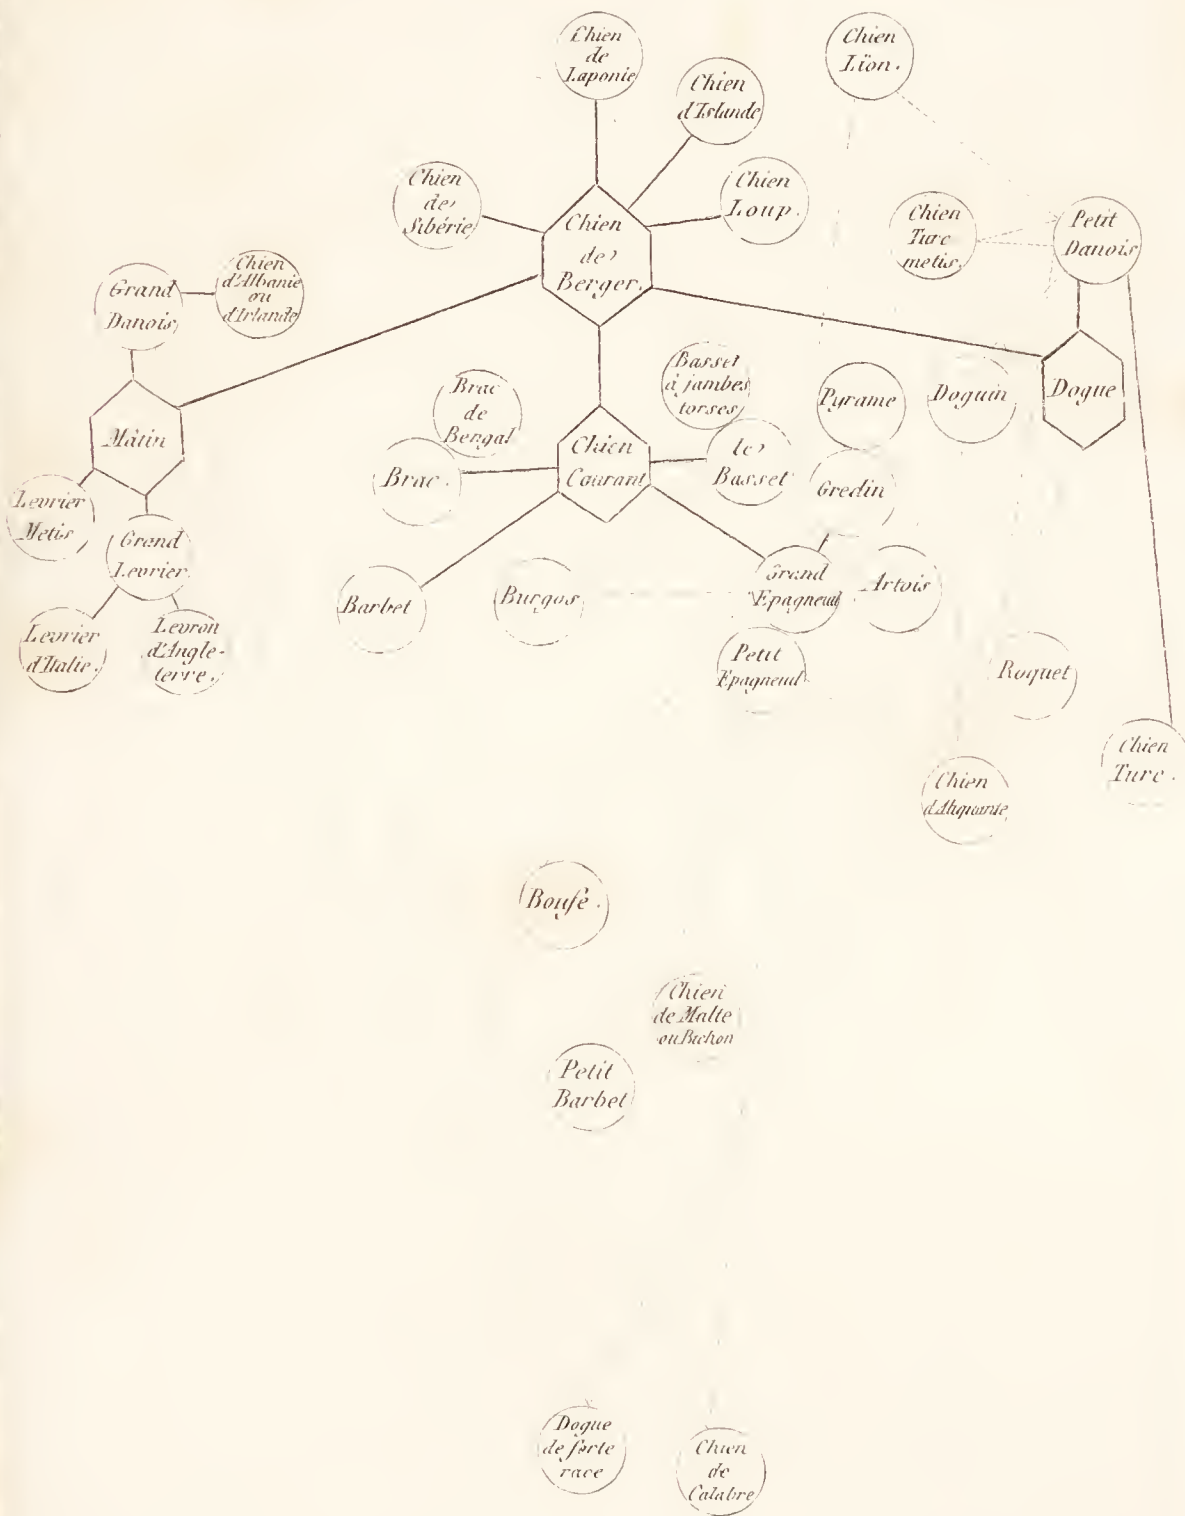 Chien
de
Laponie
Chien
Lïon.
Chien
d'Islande
Chien
de
Sibérie
Chien
Loup.
Chien
de
Berger.
Chien
Turc
metis.
Petit
Danois
Grand
Danois
Chien
d'Albanie
ou
d'Irlande
Mâtin
Brac
de
Bengal
Basset
à jambes
torses
Pyrame
Doguin
Dogue
Brac.
Chien
Courant
le
Basset
Gredin
Levrier
Metis
Grand
Levrier.
Barbet
Burgos
Grand
Epagneul
Artois
Levrier
d'Italie.
Levron
d'Angle-
terre.
Petit
Epagneul.
Roquet
Chien
Turc.
Chien
d'Aliquante
Boufe.
Chien
de Malte
ou Bichon
Petit
Barbet
Dogue
de forte
race
Chien
de
Calabre